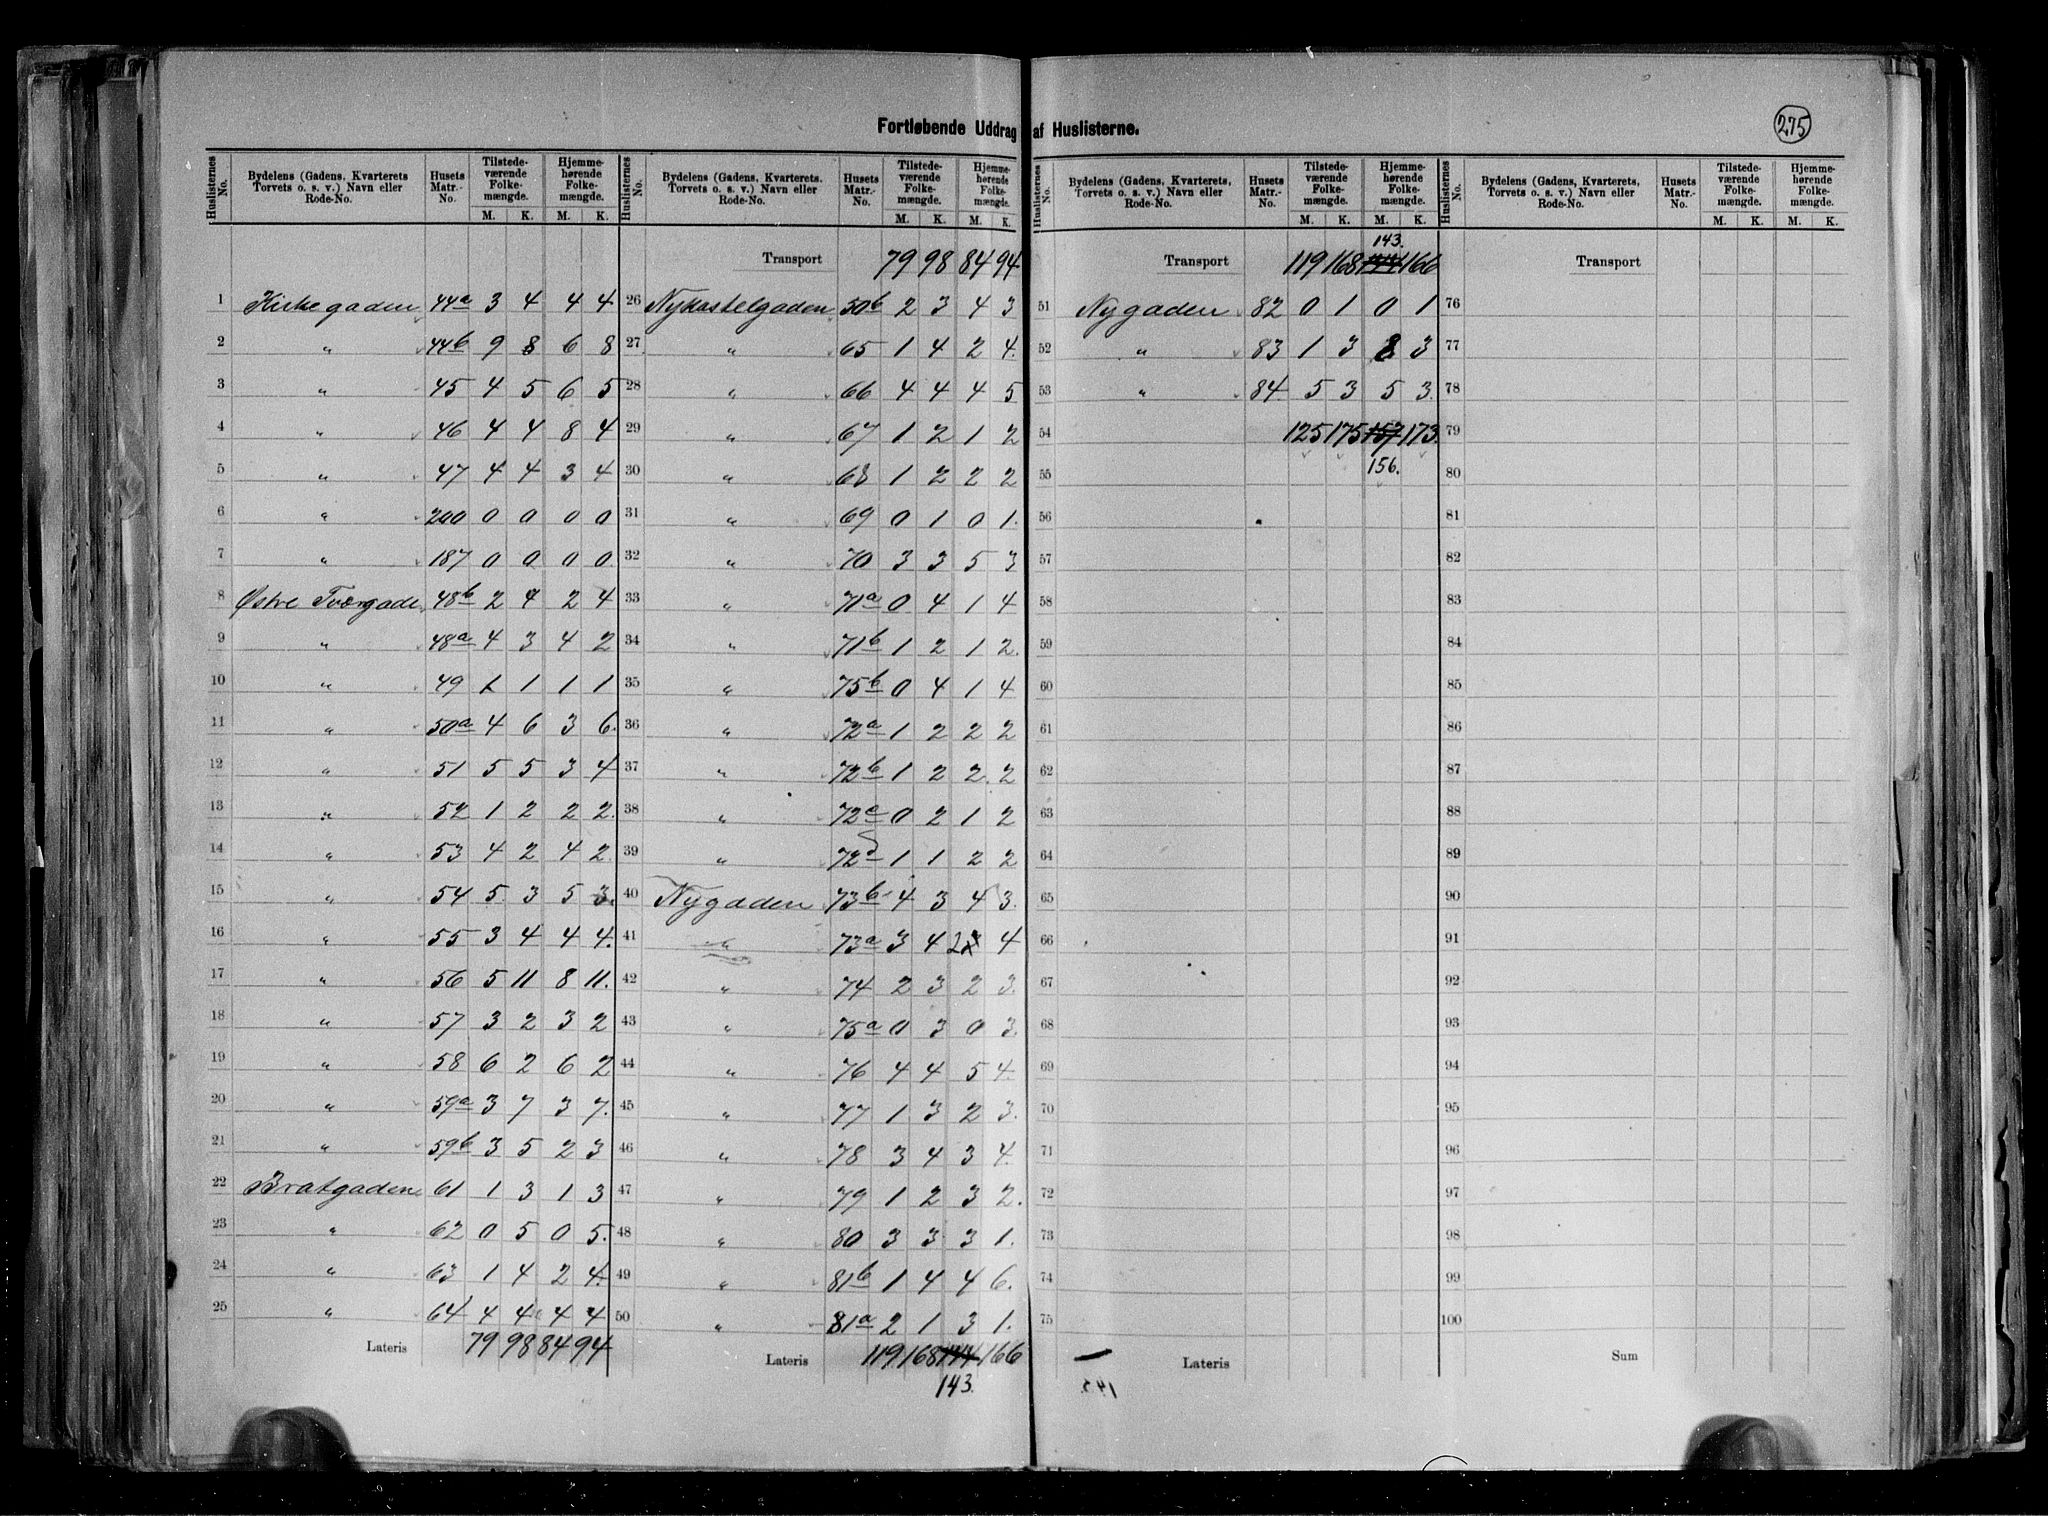 Fortløbende Uddrag af Huslisterne.
275
Huslisternes No. | Bydelens (Gadens, Kvarterets, Torvets o. s. v.) Navn eller Rode-No. | Husets Matr.-No. | Tilstedeværende Folkemængde. M. K. | Hjemmehørende Folkemængde. M. K.
1 Kirkegaden 44a 3 4 4 4
2 " 44b 9 8 6 8
3 " 45 4 5 6 5
4 " 46 4 4 8 4
5 " 47 4 4 3 4
6 " 200 0 0 0 0
7 " 187 0 0 0 0
8 Østre Tværgade 48b 2 4 2 4
9 " 48a 4 3 4 2
10 " 49 1 1 1 1
11 " 50a 4 6 3 6.
12 " 51 5 5 3 4
13 " 52 1 2 2 2.
14 " 53 4 2 4 2.
15 " 54 5 3 5 3.
16 " 55 3 4 4 4.
17 " 56 5 11 8 11.
18 " 57 3 2 3 2
19 " 58 6 2 6 2
20 " 59a 3 7 3 7.
21 " 59b 3 5 2 3
22 Bratgaden 61 1 3 1 3
23 " 62 0 5 0 5.
24 " 63 1 4 2 4.
25 " 64 4 4 4 4
Lateris 79 98 84 94
Huslisternes No. | Bydelens (Gadens, Kvarterets, Torvets o. s. v.) Navn eller Rode-No. | Husets Matr.-No. | Tilstedeværende Folkemængde. M. K. | Hjemmehørende Folkemængde. M. K.
Transport 79 98 84 94
26 Nykastelgaden 50b 2 3 4 3
27 " 65 1 4 2 4.
28 " 66 4 4 4 5
29 " 67 1 2 1 2
30 " 68 1 2 2 2
31 " 69 0 1 0 1.
32 " 70 3 3 5 3
33 " 71a 0 4 1 4
34 " 71b 1 2 1 2.
35 " 75b 0 4 1 4
36 " 72a 1 2 2 2
37 " 72b 1 2 2. 2
38 " 72c 0 2 1 2
39 " 72d 1 1 2 2
40 Nygaden 73b 4 3 4 3.
41 " 73a 3 4 2 4
42 " 74 2 3 2 3.
43 " 75a 0 3 0 3.
44 " 76 4 4 5 4.
45 " 77 1 3 2 3.
46 " 78 3 4 3 4.
47 " 79 1 2 3 2.
48 " 80 3 3 3 1.
49 " 81b 1 4 4 6.
50 " 81a 2 1 3 1.
Lateris 119 168 144 166
143.
Huslisternes No. | Bydelens (Gadens, Kvarterets, Torvets o. s. v.) Navn eller Rode-No. | Husets Matr.-No. | Tilstedeværende Folkemængde. M. K. | Hjemmehørende Folkemængde. M. K.
143.
Transport 119 168 144 166
51 Nygaden 82 0 1 0 1
52 " 83 1 3 8 3
53 " 84 5 3 5 3.
54 125 175 157 173.
55 156.
56
57
58
59
60
61
62
63
64
65
66
67
68
69
70
71
72
73
74
75
Lateris
Huslisternes No. | Bydelens (Gadens, Kvarterets, Torvets o. s. v.) Navn eller Rode-No. | Husets Matr.-No. | Tilstedeværende Folkemængde. M. K. | Hjemmehørende Folkemængde. M. K.
Transport
76
77
78
79
80
81
82
83
84
85
86
87
88
89
90
91
92
93
94
95
96
97
98
99
100
Sum